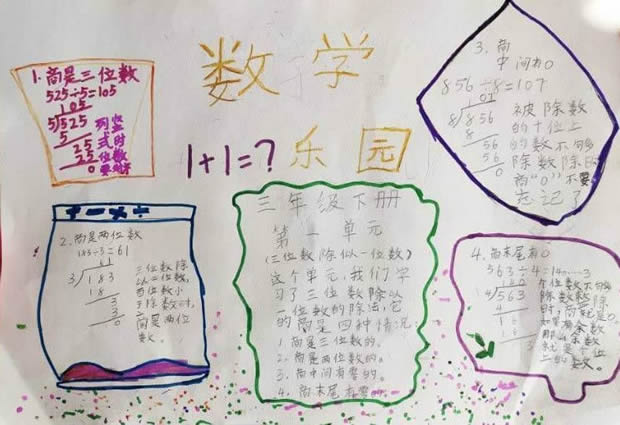 数学
1+1=?乐园
1.商是三位数
525÷5=105
105
5/525 列竖
5 式时
25 位数
25 要对
0
3.商
中间有0
856÷8=107
8/856 被除数
8 的十位上
56 的数不够
56 除数除时
0 商“0”不要
忘记了
2.商是两位数
183÷3=61
61
3/183 三位数除
18 以一位数,
3 百位数小
3 于除数时,
0 商是两位
数。
三年级下册
第一单元
(三位数除似一位数)
这个单元,我们学
习了三位数除以
一位数的除法,它
的商是四种情况:
1.商是三位数的。
2.商是两位数的。
3.商中间有零的。
4.商末尾有零的。
4.商末尾有0
563÷4=140……3
140 个位数不够
4/563 除数除
4 时,商就是0。
16 如果有余数
16 那么余数
3 就是个位
上的数。